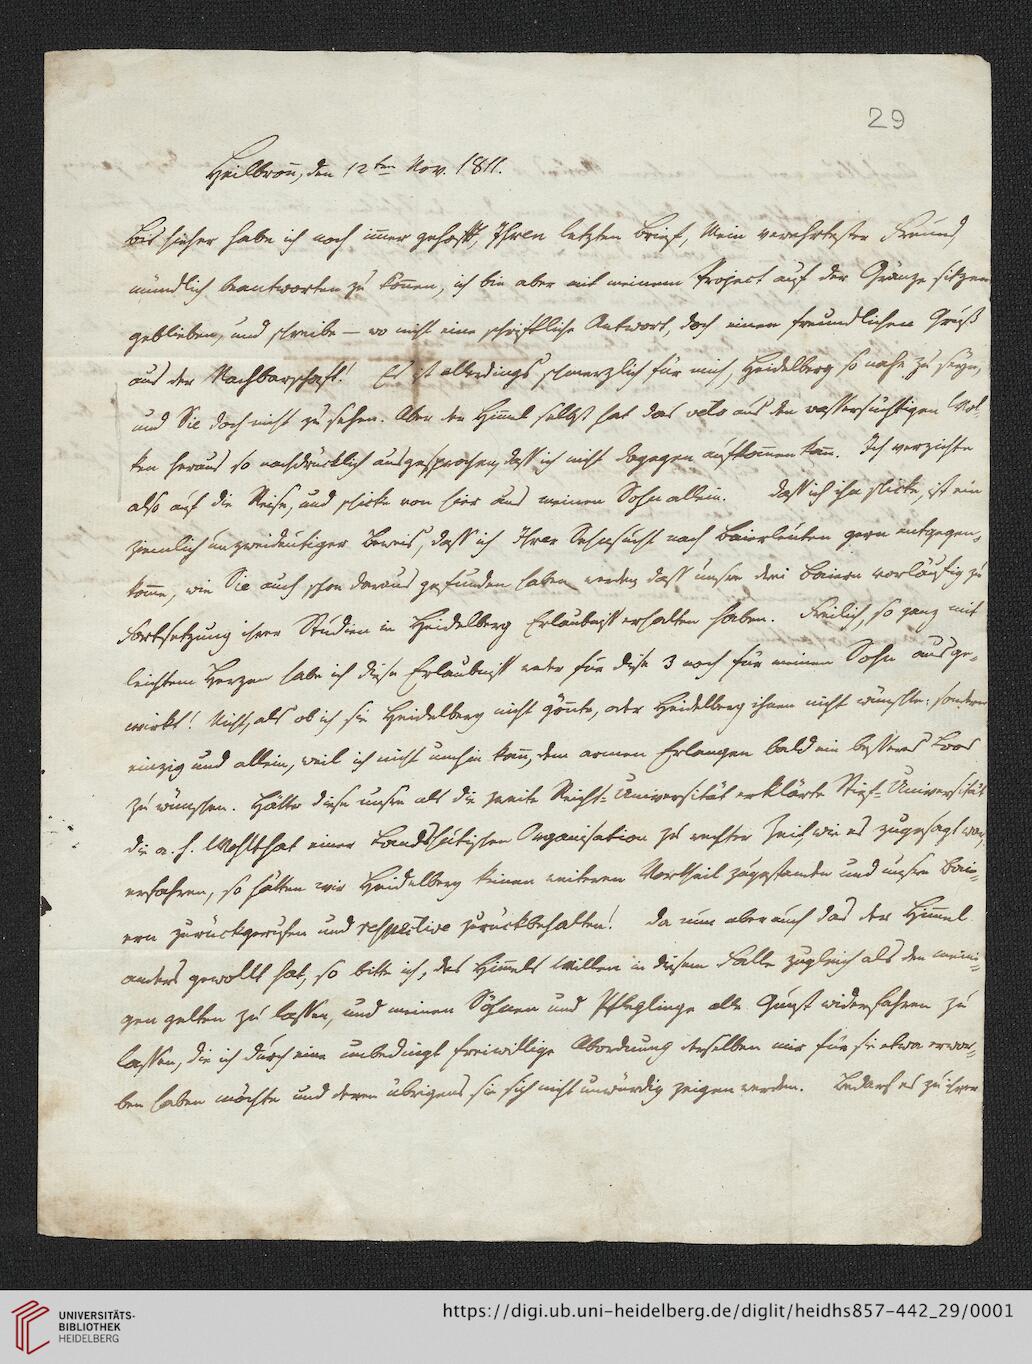 29
Heilbronn, den 12ten Nov. 1811.
Bis hieher habe ich noch immer gehofft, Ihren letzten Brief, Mein verehrtester Freund
mündlich beantworten zu können, ich bin aber mit meinem Project auf der Gränze sitzen
geblieben, und schreibe – wo nicht eine schriftliche Antwort, doch einen freundlichen Gruß
aus der Nachbarschaft! Es ist allerdings schmerzlich für mich, Heidelberg so nahe zu seyn,
und Sie doch nicht zu sehen. Aber der Himmel selbst hat das veto aus den wassersüchtigen Wol-
ken heraus so nachdrücklich ausgesprochen, daß ich nicht dagegen aufkommen kann. Ich verzichte
also auf die Reise, und schicke von hier aus meinen Sohn allein. Daß ich ihn schicke, ist ein
ziemlich unzweideutiger Beweis, daß ich Ihrer Sehnsucht nach Baierleuten gern entgegen-
komme, wie Sie auch schon daraus gefunden haben werden daß unsere drei Baiern vorläufig zu
Fortsetzung ihrer Studien in Heidelberg Erlaubniß erhalten haben. Freilich, so ganz mit
leichtem Herzen habe ich diese Erlaubniß weder für diese 3 noch für meinen Sohn ausge-
wirkt! Nicht, als ob ich sie Heidelberg nicht gönnte, oder Heidelberg ihnen nicht wünschte: sondern
einzig und allein, weil ich nicht umhin kann, dem armen Erlangen bald ein besseres Loos
zu wünschen. Hätte diese unsre als die zweite Reichs-Universität erklärte Stief-Universität
die a. h. Wohlthat einer Organisation zu rechter Zeit, wie es zugesagt war,
erfahren, so hätten wir Heidelberg keinen weiteren Vortheil zugestanden und unsere Bai-
ern zurückgerufen und respective zurückbehalten! Da nun aber auch das der Himmel
anders gewollt hat, so bitte ich, des Himmels Willen in diesem Falle zugleich als den meini-
gen gelten zu lassen, und meinen Söhnen und Pfleglinge alle Gunst widerfahren zu
lassen, die ich durch eine unbedingt freiwillige Abordnung derselben mir für sie etwa erwor-
ben haben möchte und deren übrigens sie sich nicht unwürdig zeigen werden. Bedarf es zu ihrer
UNIVERSITÄTS-
BIBLIOTHEK
HEIDELBERG
https://digi.ub.uni-heidelberg.de/diglit/heidhs857-442_29/0001